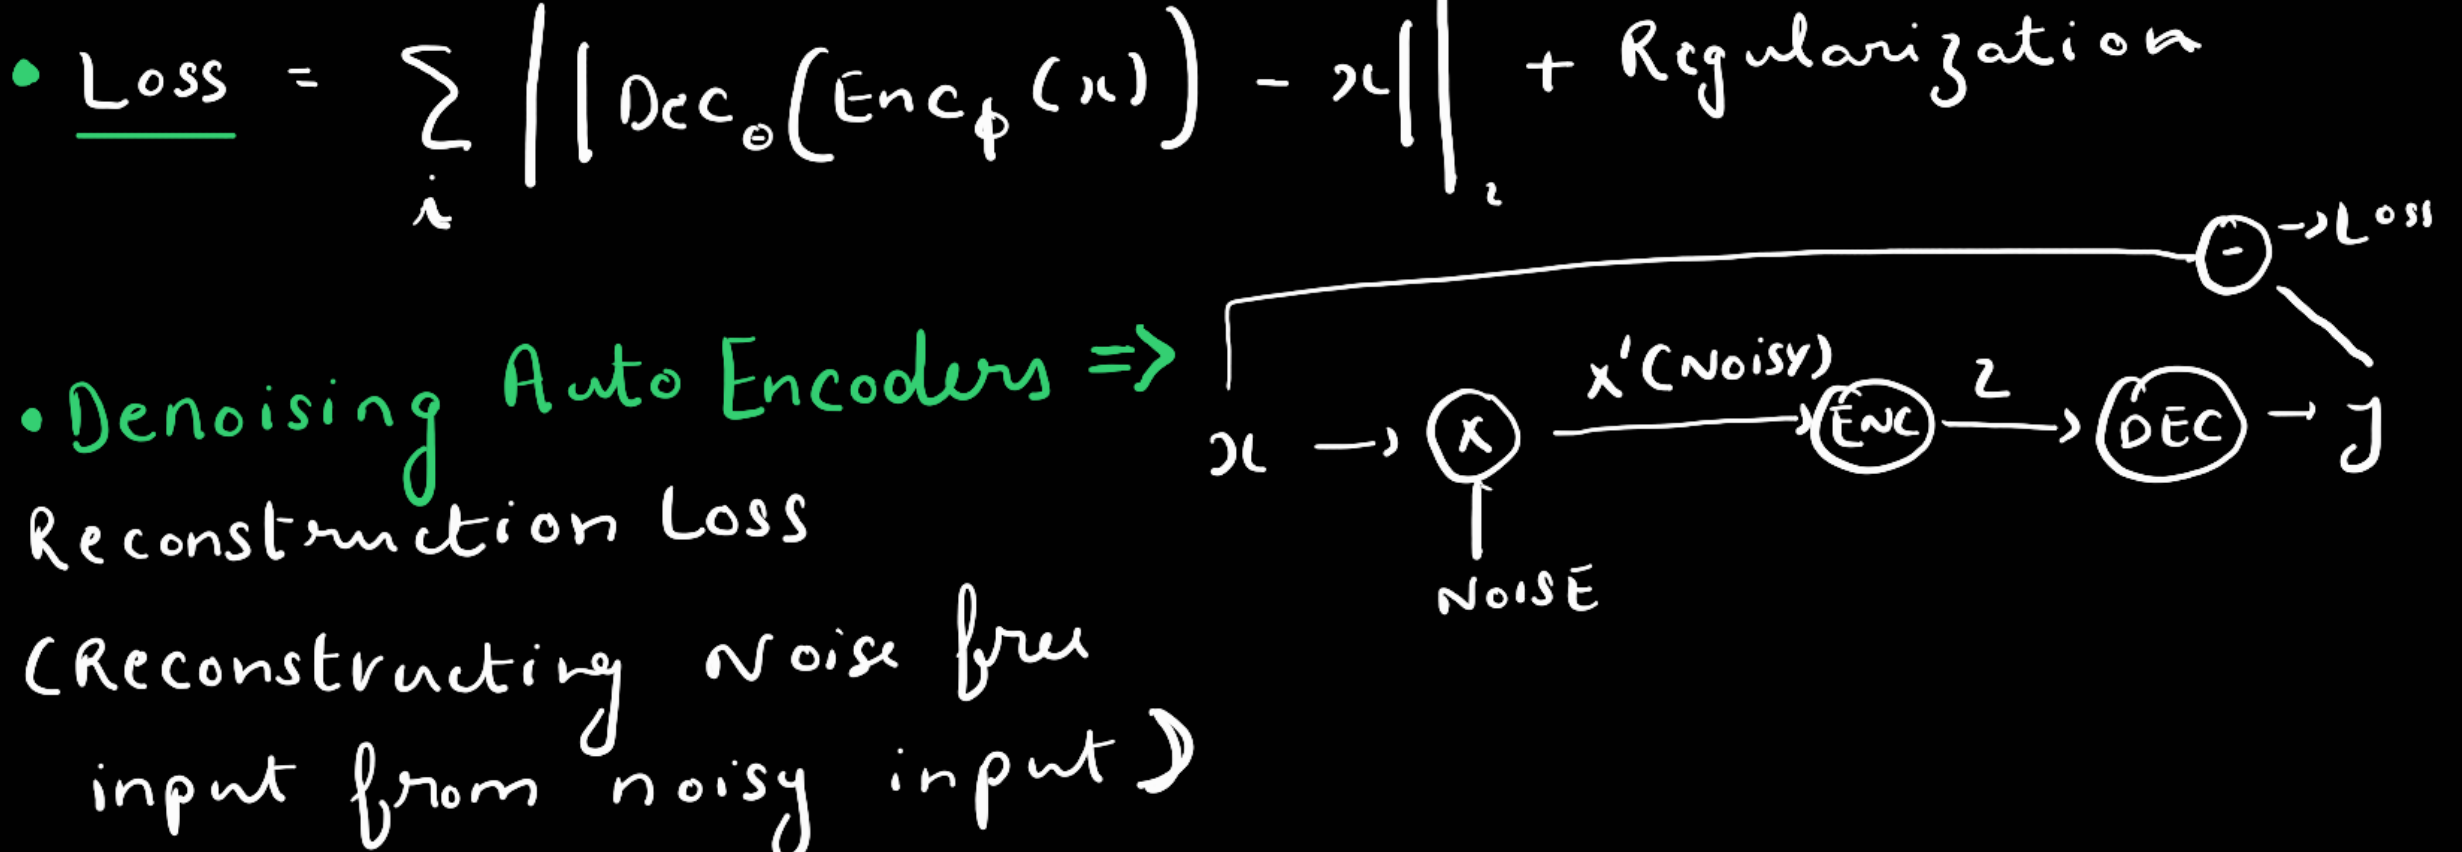 • Loss = Σ_i ||Dec_θ(Enc_φ(x)) - x||_2 + Regularization
• Denoising Auto Encoders =>
Reconstruction Loss
(Reconstructing Noise free
input from noisy input)
→ Loss
-
x → X x' (Noisy) → ENC z → DEC → y
NOISE